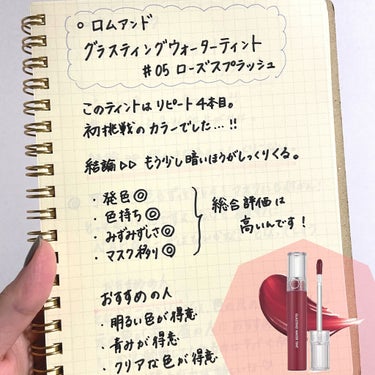 ○ ロムアンド
グラスティングウォーターティント
#05 ローズスプラッシュ
このティントは リピート4本目。
初挑戦のカラーでした…!!
結論▷▷ もう少し暗いほうがしっくりくる。
・発色◎
・色持ち◎
・みずみずしさ◎
・マスク移り◎
総合評価は
高いんです!
おすすめの人
・明るい色が得意
・青みが得意
・クリアな色が得意